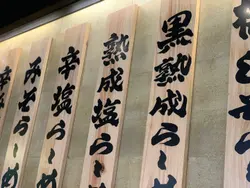 黒熟成らー
熟成塩らーめ
辛塩らーめ
みそらーめ